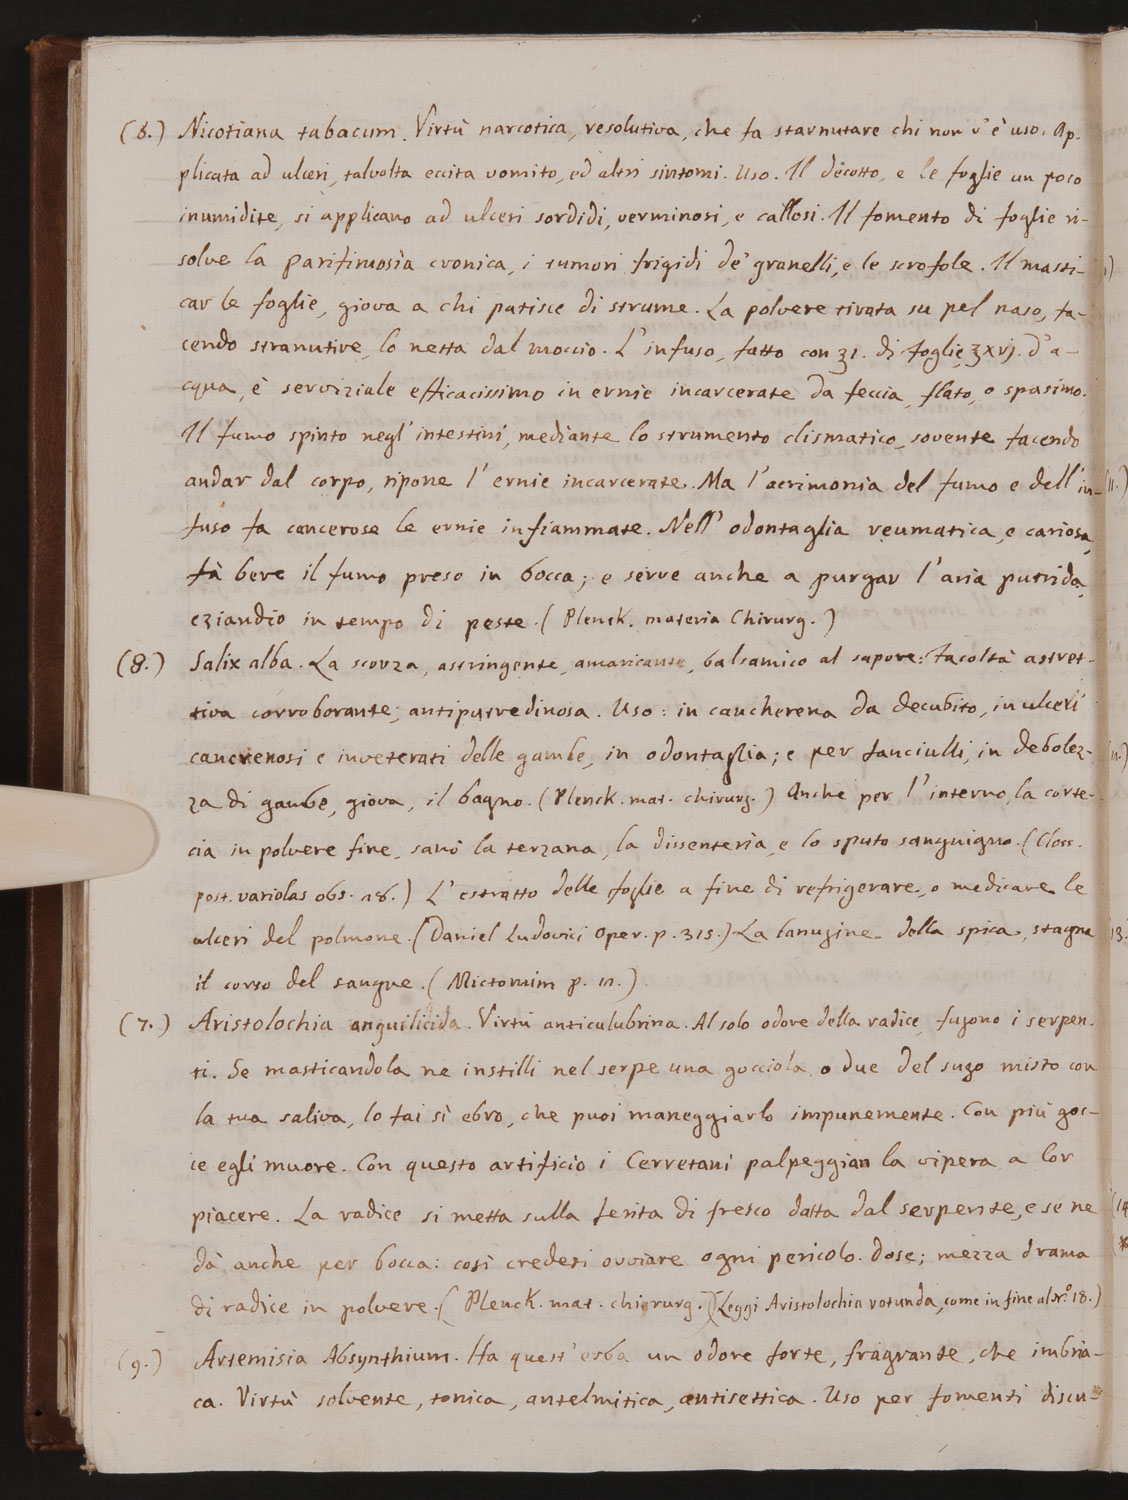 (6.) Nicotiana tabacum. Virtù narcotica, resolutiva, che fa starnutare chi non v'è uso. Ap-
plicata ad ulceri, talvolta eccita vomito, ed altri sintomi. Uso. Il decotto, e le foglie un poco
inumidite, si applicano ad ulceri sordidi, verminosi, e callosi. Il fomento di foglie ri-
solve la parifimosia cronica, i tumori frigidi de' granelli, e le scrofole. Il masti-
car le foglie, giova a chi patisce di strume. La polvere tirata su pel naso, fa-
cendo stranutire, lo netta dal moccio. L'infuso, fatto con ʒ1. di foglie, ʒxvj. d'a-
cqua, è serviziale efficacissimo in ernie incarcerate da feccia, flato, o spasimo.
Il fumo spinto negl'intestini, mediante lo strumento clismatico, sovente facendo
andar dal corpo, ripone l'ernie incarcerate. Ma l'acrimonia del fumo e dell'in-
fuso fa cancerose le ernie infiammate. Nell'odontaglia reumatica, e cariosa,
fà bere il fumo preso in bocca; e serve anche a purgar l'aria putrida,
eziandio in tempo di peste. (Plenck. materia Chirurg.)
(8.) Salix alba. La scorza, astringente, amaricante, balsamico al sapore: facoltà astret-
tiva corroborante, antiputredinosa. Uso: in cancherena da decubito, in ulceri
cancrenosi e inveterati delle gambe, in odontaglia; e per fanciulli, in debolez-
za di gambe, giova, il bagno. (Plenck. mat. chirurg.) Anche per l'interno, la corte-
cia in polvere fine, sanò la terzana, la dissenteria, e lo sputo sanguigno. (Closs.
post. variolas obs. 18.) L'estratto delle foglie a fine di refrigerare, o medicare le
ulceri del polmone. (Daniel Ludovici Oper. p. 315.) La lanugine della spica, stagna
il corso del sangue. (Mictomim p. 11.)
(7.) Aristolochia anguilicida. Virtù anticulubrina. Al solo odore della radice, fugono i serpen-
ti. Se masticandola ne instilli nel serpe una gocciola o due del sugo misto con
la tua saliva, lo fai sì ebro, che puoi maneggiarlo impunemente. Con più goc-
cie egli muore. Con questo artificio i Cerretani palpeggian la vipera a lor
piacere. La radice si metta sulla ferita di fresco datta dal serpente, e se ne
dà anche per bocca: così credesi ovviare ogni pericolo. Dose; mezza drama
di radice in polvere. (Plenck. mat. chirurg.) (Leggi Aristolochia rotunda, come in fine al Nº. 18.)
(9.) Artemisia Absynthium. Ha quest'erba un odore forte, fragrante, che imbria-
ca. Virtù solvente, tonica, antelmitica, antisettica. Uso per fomenti discu-